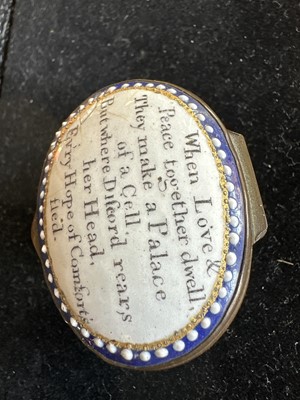 When Love &
Peace together dwell,
They make a Palace
of a Cell.
But where Diſcord rears
her Head,
Every Hope of Comfort's
fled.